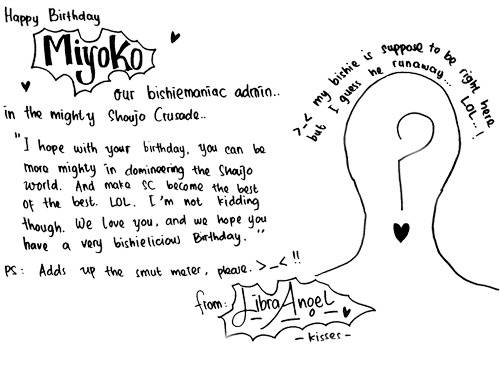 Happy Birthday
Miyoko
our bishiemaniac admin..
in the mighty Shoujo Crusade..
"I hope with your birthday, you can be
more mighty in domineering the Shoujo
world. And make SC become the best
of the best. LOL. I'm not kidding
though. We love you, and we hope you
have a very bishielicious Birthday."
PS: Adds up the smut meter, please. >_< !!
from: LibraAngel
- kisses -
>_< my bishie is suppose to be right here
but I guess he runaway... LOL..!
?